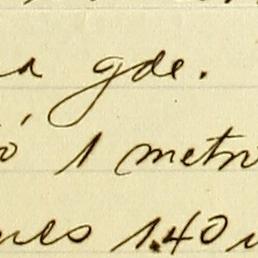 a gde.
ó 1 metr
nes 1.40